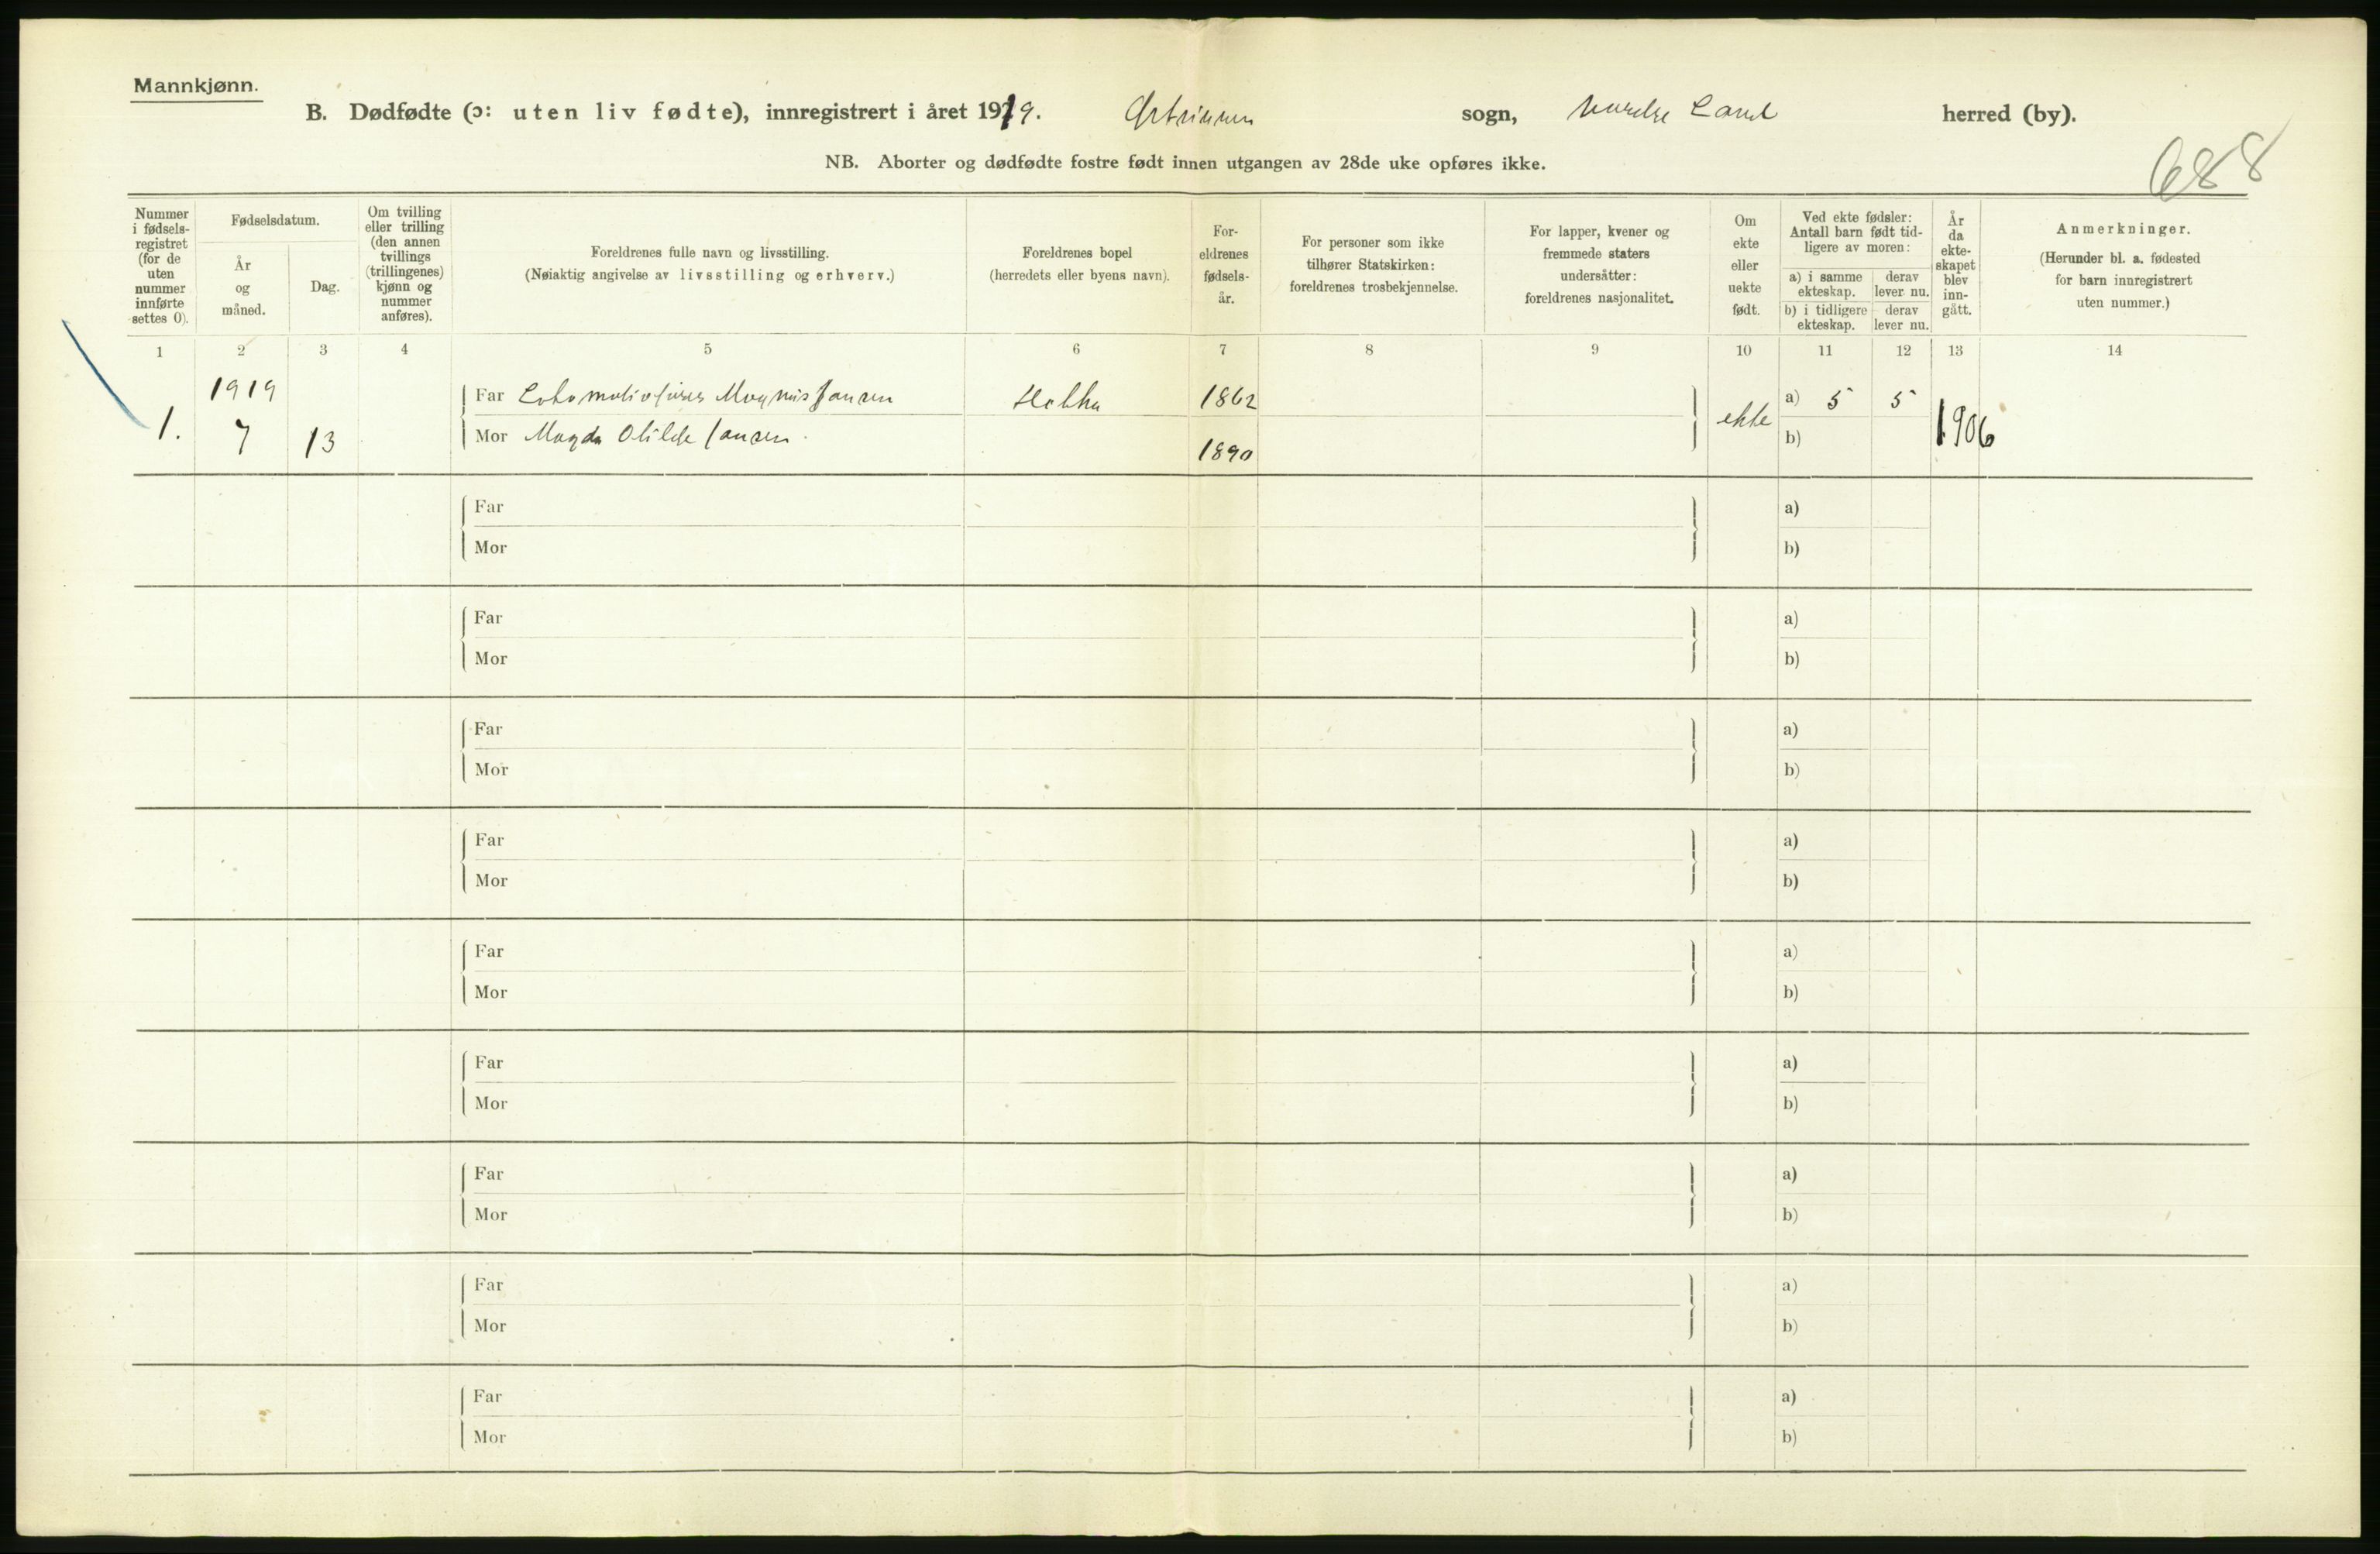 Mannkjønn.
B. Dødfødte (ɔ: uten liv fødte), innregistrert i året 1919. Østsinnen sogn, Nordre Land herred (by).
NB. Aborter og dødfødte fostre født innen utgangen av 28de uke opføres ikke.
688
Nummer i fødselsregistret (for de uten nummer innførte settes 0).
Fødselsdatum.
År og måned.
Dag.
Om tvilling eller trilling (den annen tvillings (trillingenes) kjønn og nummer anføres).
Foreldrenes fulle navn og livsstilling.
(Nøiaktig angivelse av livsstilling og erhverv.)
Foreldrenes bopel
(herredets eller byens navn).
Foreldrenes fødselsår.
For personer som ikke tilhører Statskirken: foreldrenes trosbekjennelse.
For lapper, kvener og fremmede staters undersåtter: foreldrenes nasjonalitet.
Om ekte eller uekte født.
Ved ekte fødsler: Antall barn født tidligere av moren:
a) i samme ekteskap. derav lever nu.
b) i tidligere ekteskap. derav lever nu.
År da ekteskapet blev inngått.
Anmerkninger.
(Herunder bl. a. fødested for barn innregistrert uten nummer.)
1 2 3 4 5 6 7 8 9 10 11 12 13 14
1. 1919 7 13
Far Lokomotivfører Magnus Jansen 1862
Mor Magda Otilde Jansen. 1890
ekte a) 5 5 1906
b)
Far a)
Mor b)
Far a)
Mor b)
Far a)
Mor b)
Far a)
Mor b)
Far a)
Mor b)
Far a)
Mor b)
Far a)
Mor b)
Far a)
Mor b)
Far a)
Mor b)